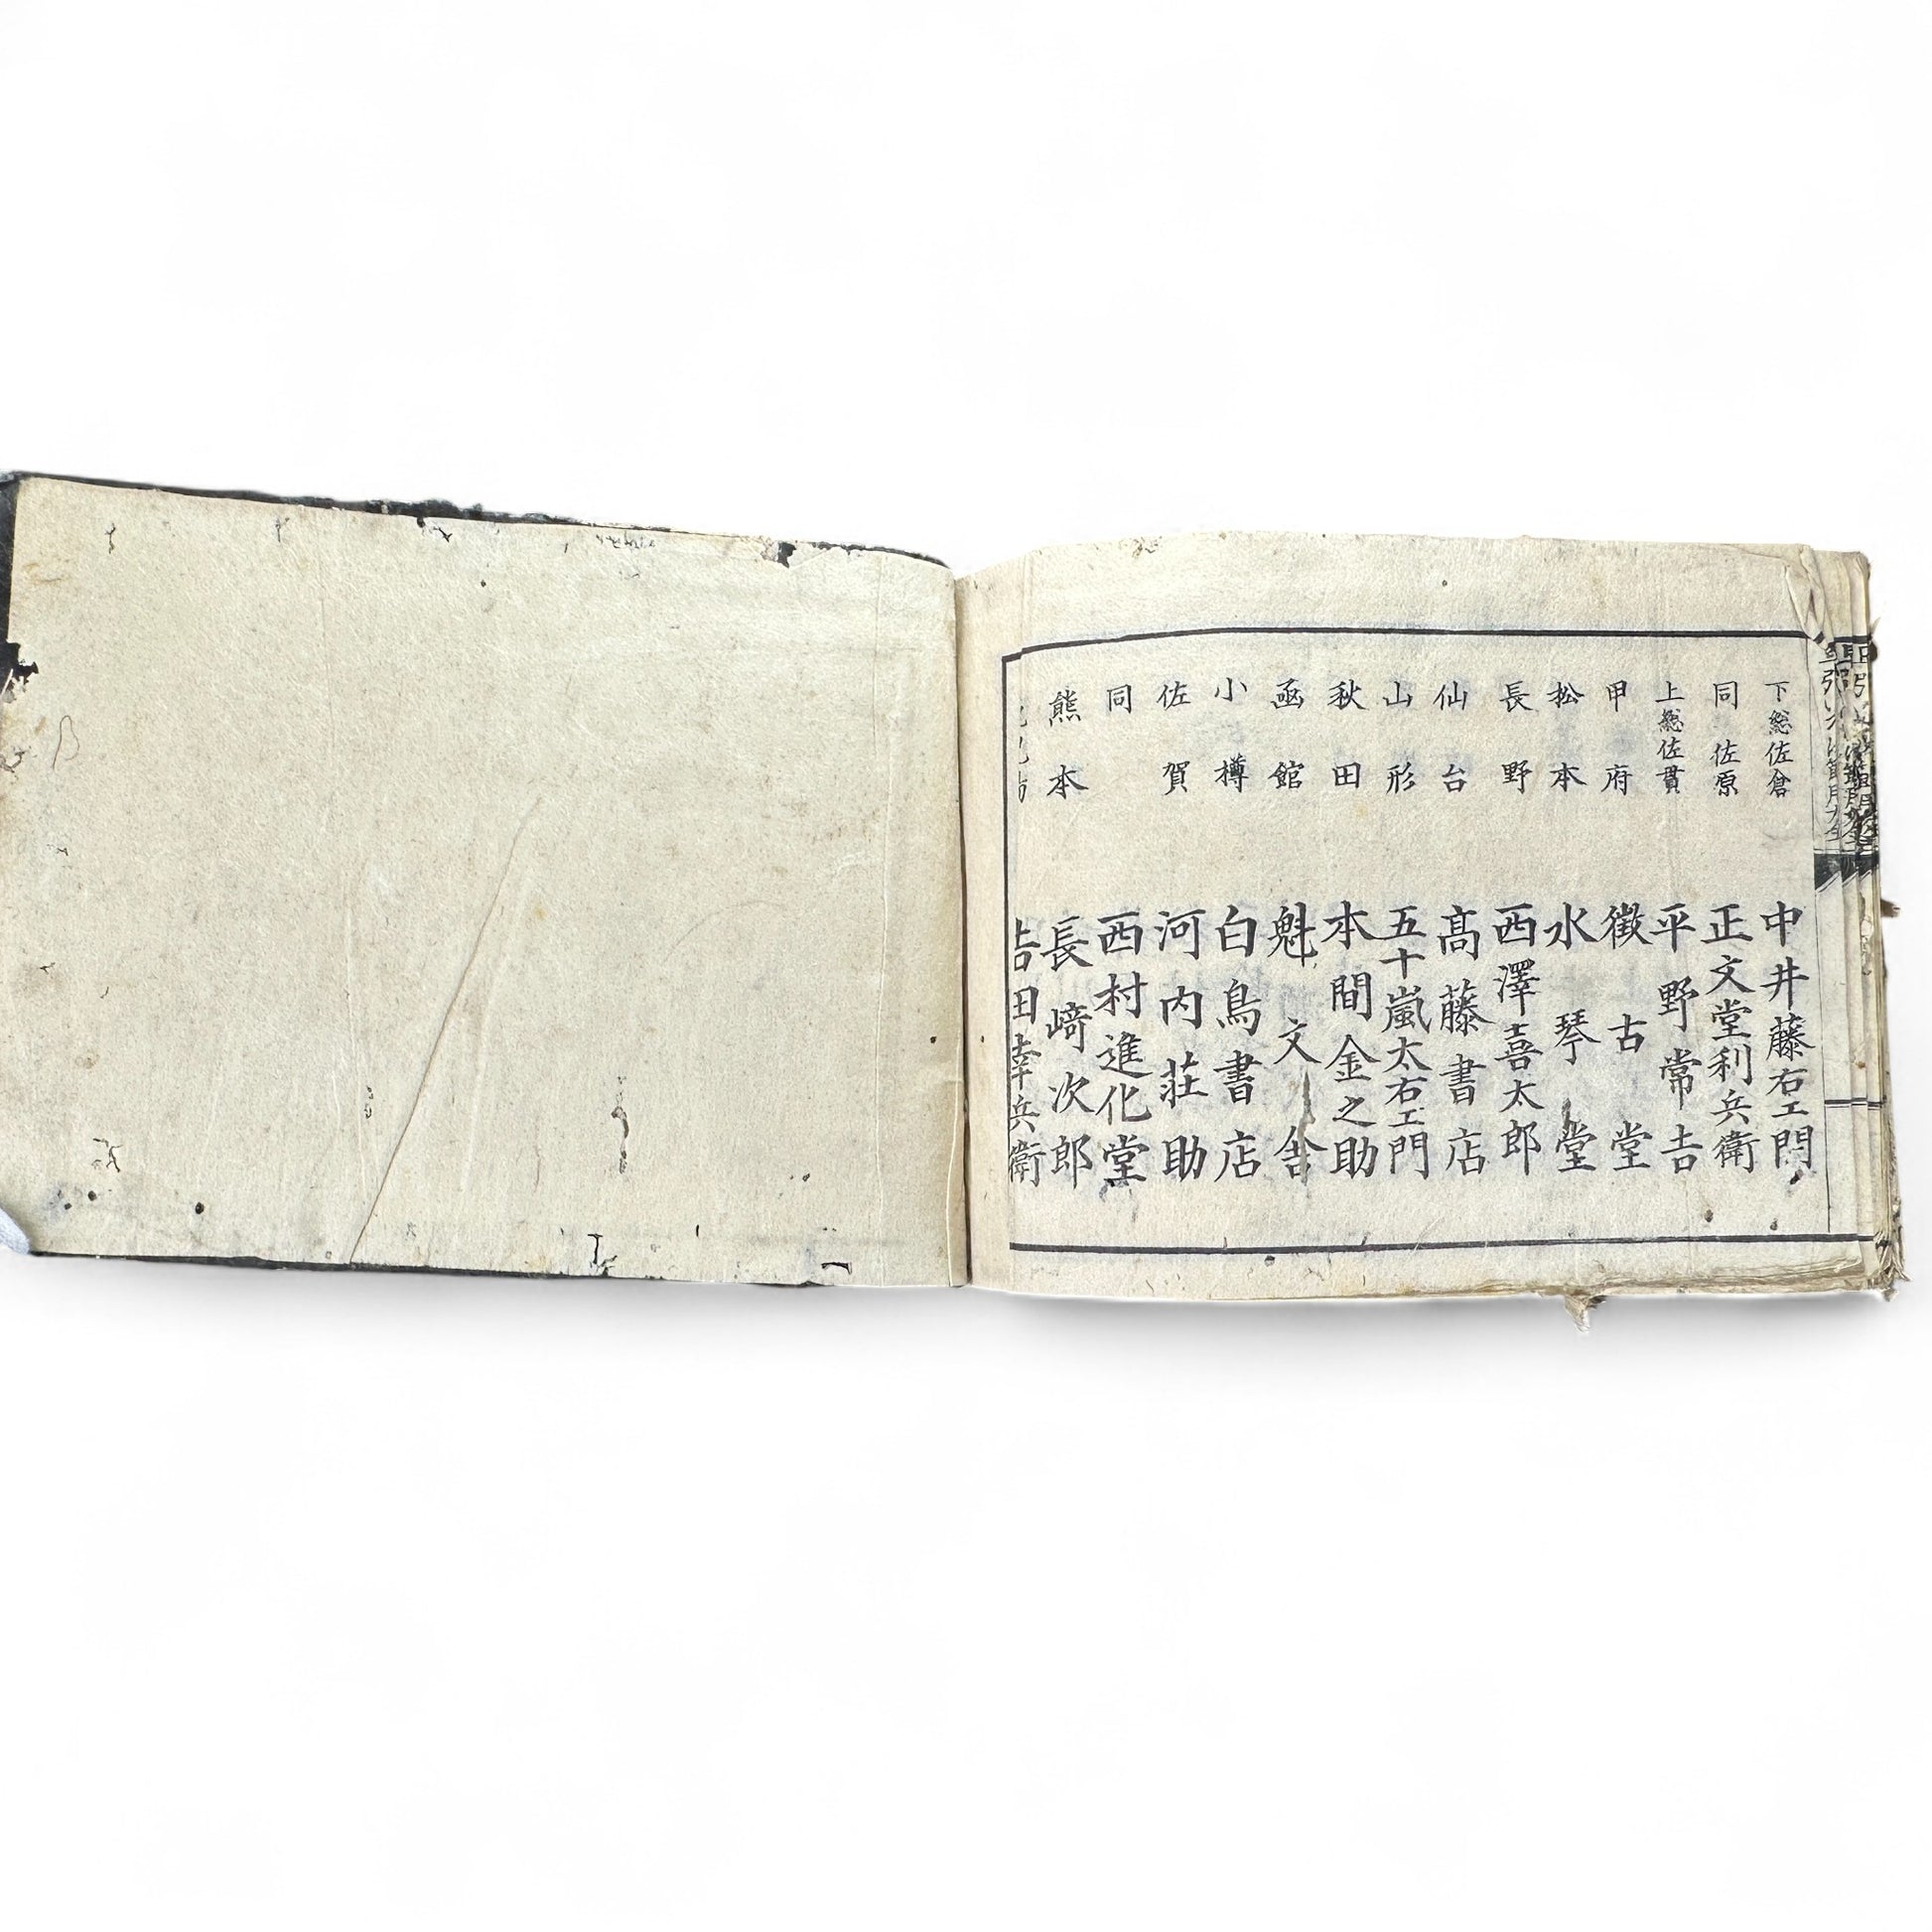 下総佐倉 中井藤右エ門
同佐原 正文堂利兵衛
上総佐貫 平野常吉
甲府 徴古堂
松本 水琴堂
長野 西澤喜太郎
仙台 高藤書店
山形 五十嵐太右エ門
秋田 本間金之助
凾館 魁文舎
小樽 白鳥書店
佐賀 河内荘助
同 西村進化堂
熊本 長﨑次郎
吉田幸兵衛